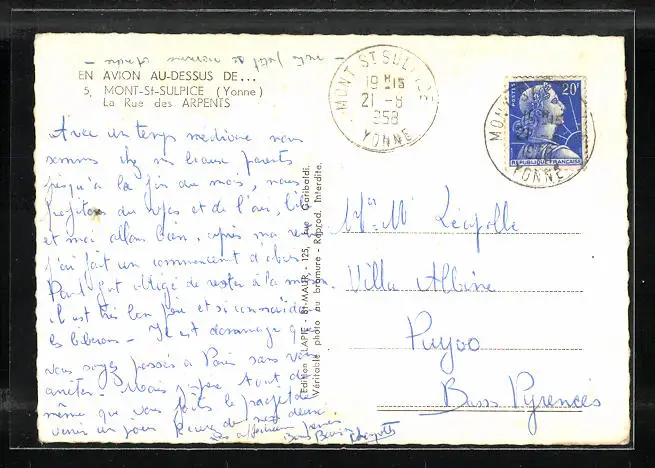 EN AVION AU-DESSUS DE...
5, MONT-St-SULPICE (Yonne)
La Rue des ARPENTS
Avec un temps médiocre nous
sommes chez mes beaux parents
jusqu'à la fin du mois, nous
profitons du repos et de l'air,
et moi allons bien, après ma
j'ai fait un commencement d'abcès
Paul fut obligé de rester à la maison
il est très bon père et si connaît
les biberons - Il est dommage que
vous soyez passés à Paris sans vous
arrêter - Mais j'espère tout de
même que vous faites le projet de
venir un jour
Bons Baisers
Edition LAPIE - St-MAUR - 125, rue Garibaldi.
Véritable photo au bromure - Reprod. Interdite.
MONT ST SULPICE
19 H 15
21 - 8
1958
YONNE
POSTES
20F
REPUBLIQUE FRANÇAISE
YONNE
Mr Me Léapolle
Villa Albine
Puyoo
Bses Pyrénées